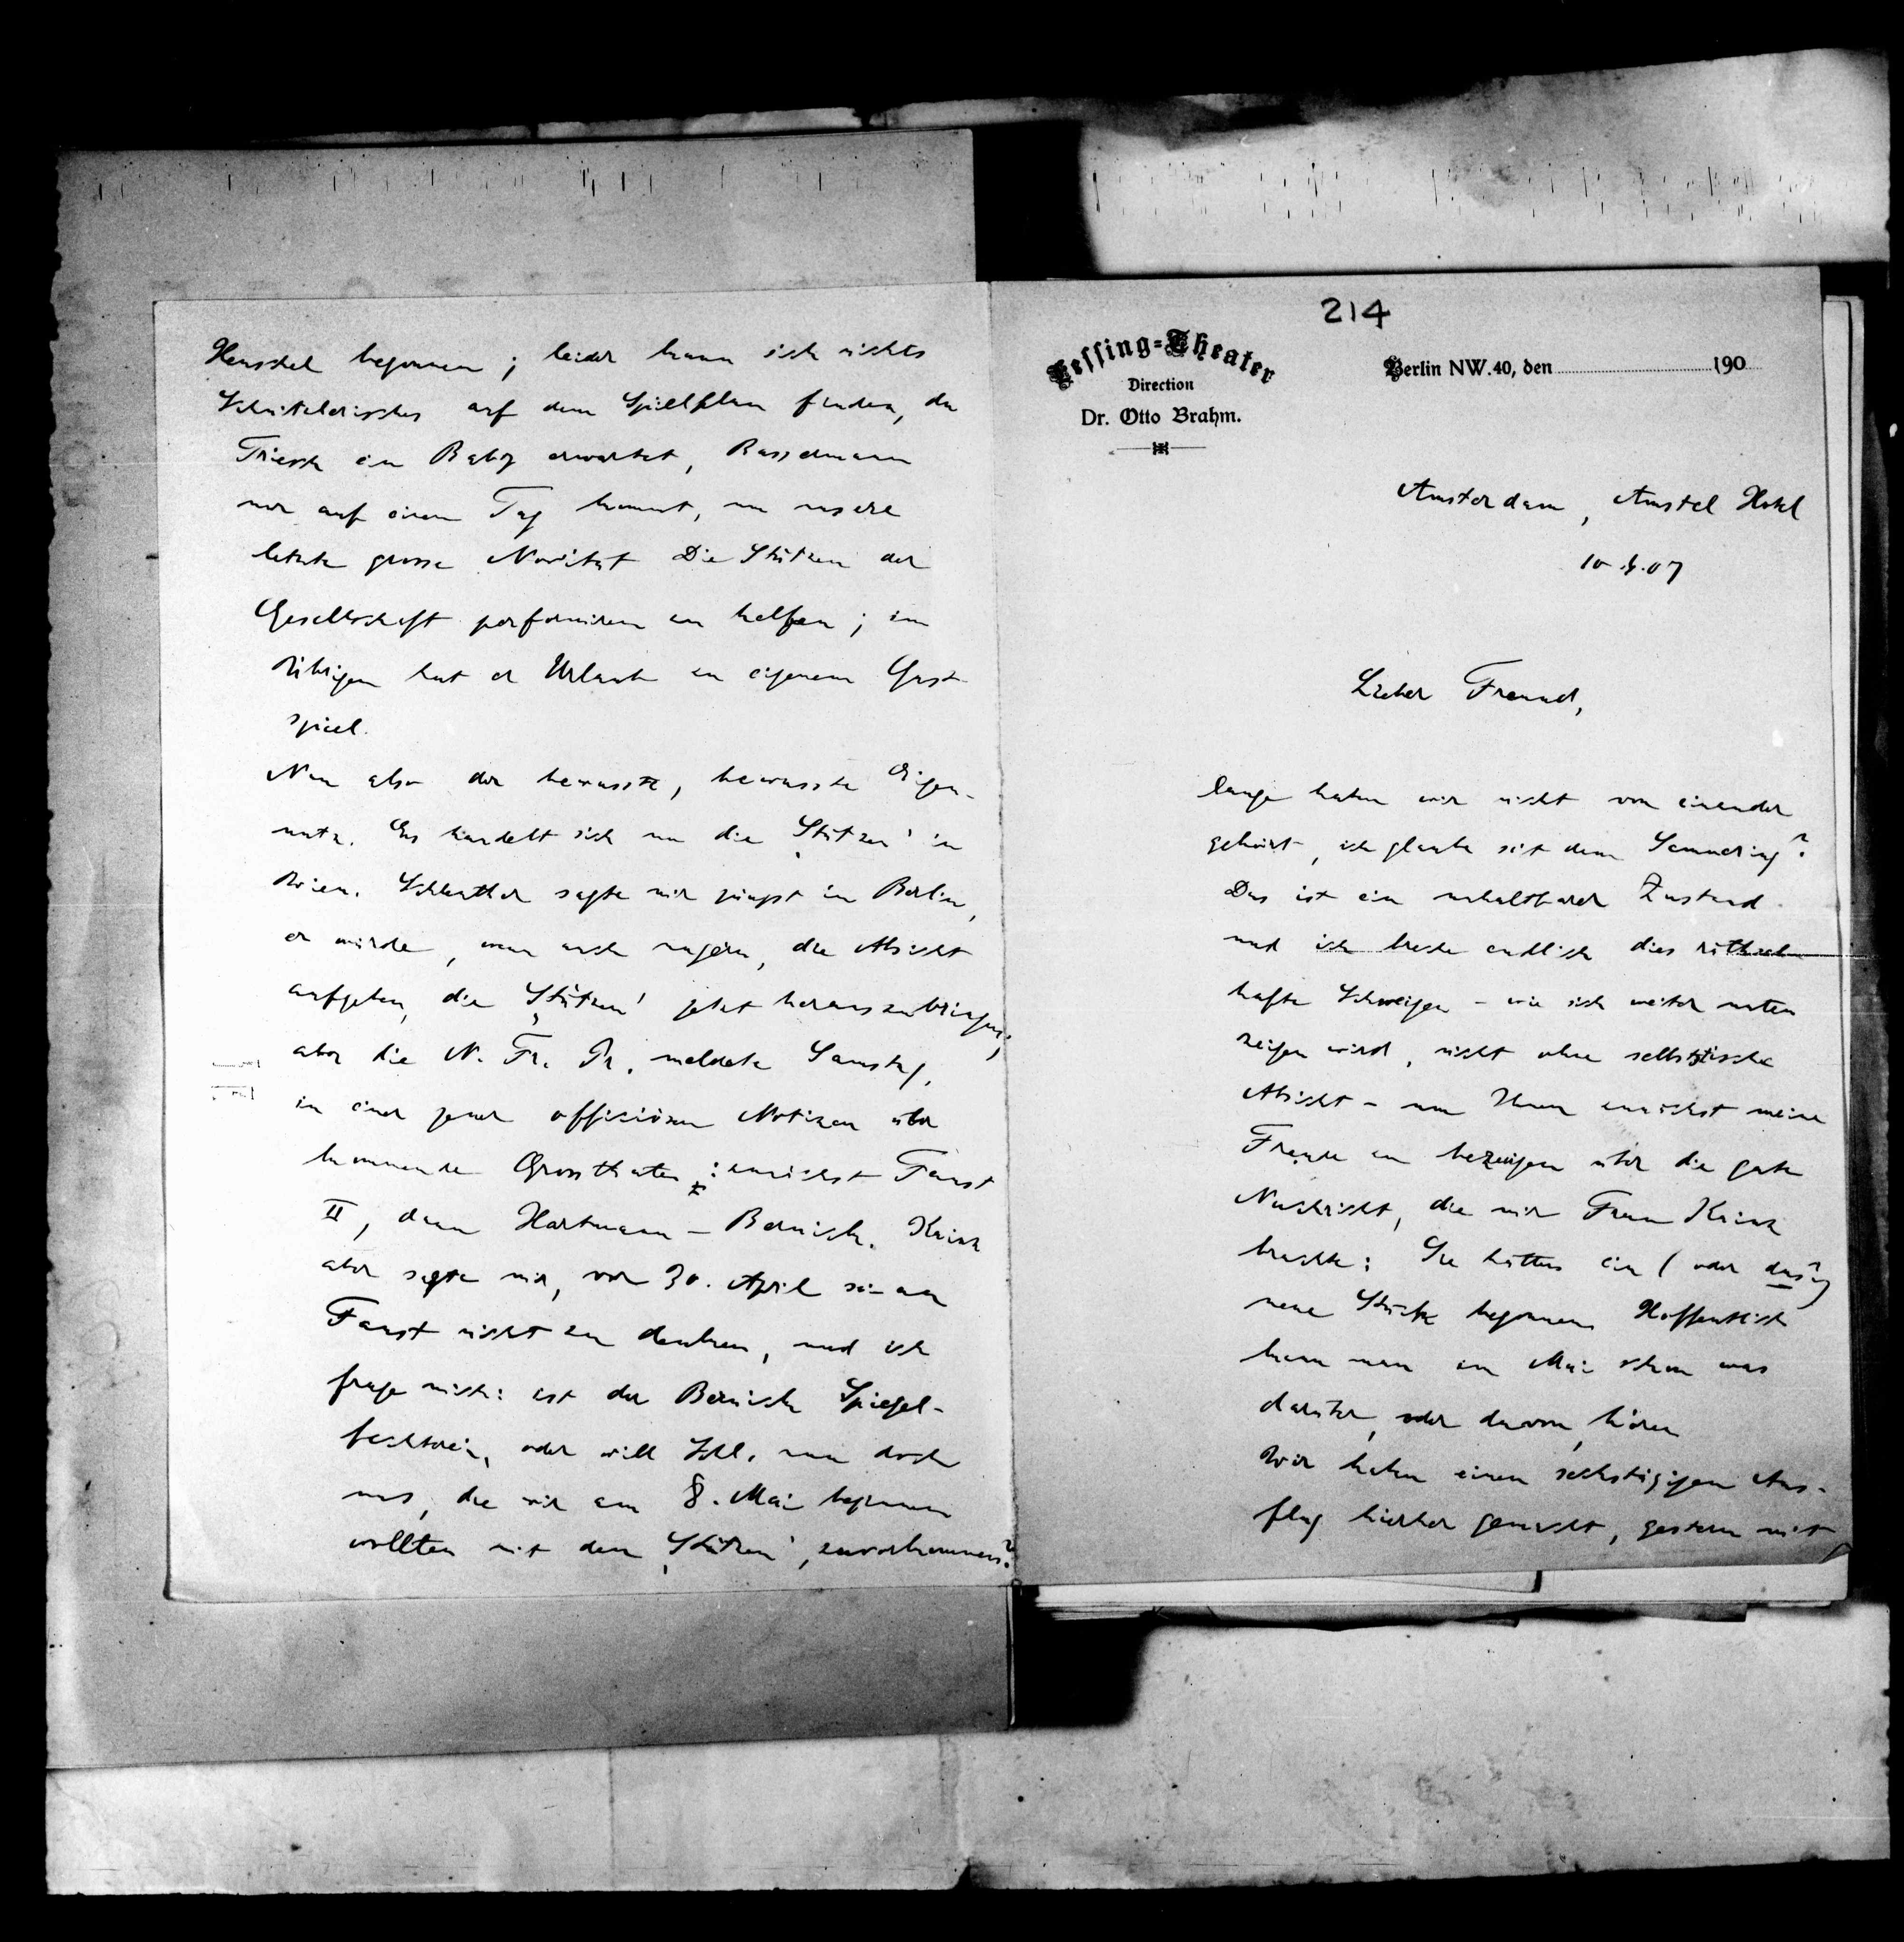 214
Lessing-Theater
Direction
Dr. Otto Brahm.
Berlin NW. 40, den 190
Amsterdam, Amstel Hotel
10.4.07
Lieber Freund,
lange haben wir nicht von einander
gehört, ich glaube seit dem Semmering?
Das ist ein unhaltbarer Zustand
und ich breche endlich dies räthsel-
hafte Schweigen – wie sich weiter unten
zeigen wird, nicht ohne selbstische
Absicht – um Ihnen zunächst meine
Freude zu bezeigen über die gute
Nachricht, die mir Frau Kainz
brachte: Sie hätten ein (oder das?)
neue Stück begonnen. Hoffentlich
kann man im Mai schon was
darüber, oder davon, hören.
Wir haben einen sechstägigen Aus-
flug hierher gemacht, gestern mit
Henschel begonnen; leider kann ich nichts
Schnitzlerisches auf dem Spielplan finden, da
Triesch ein Baby erwartet, Bassermann
nur auf einen Tag kommt, um unsere
letzte grosse Novität Die Stützen der
Gesellschaft performiren zu helfen; im
Übrigen hat er Urlaub zu eigenem Gast-
spiel.
Nun also der bewusste, bewusste Eigen-
nutz. Es handelt sich um die 'Stützen' in
Wien. Schlenther sagte mir jüngst in Berlin,
er würde, wenn auch ungern, die Absicht
aufgeben, die 'Stützen' jetzt herauszubringen;
aber die N. Fr. Pr. meldete Samstag,
in einer jener offiziösen Notizen über
kommende Grossthaten: zunächst Faust
II, dann Hartmann – Bernick. Kainz
aber sagte mir, vor 30. April sei an
Faust nicht zu denken, und ich
frage mich: ist der Bernick Spiegel-
fechterei, oder will Schl. nun doch
uns, die wir am 8. Mai beginnen
wollten mit den 'Stützen', zuvorkommen?